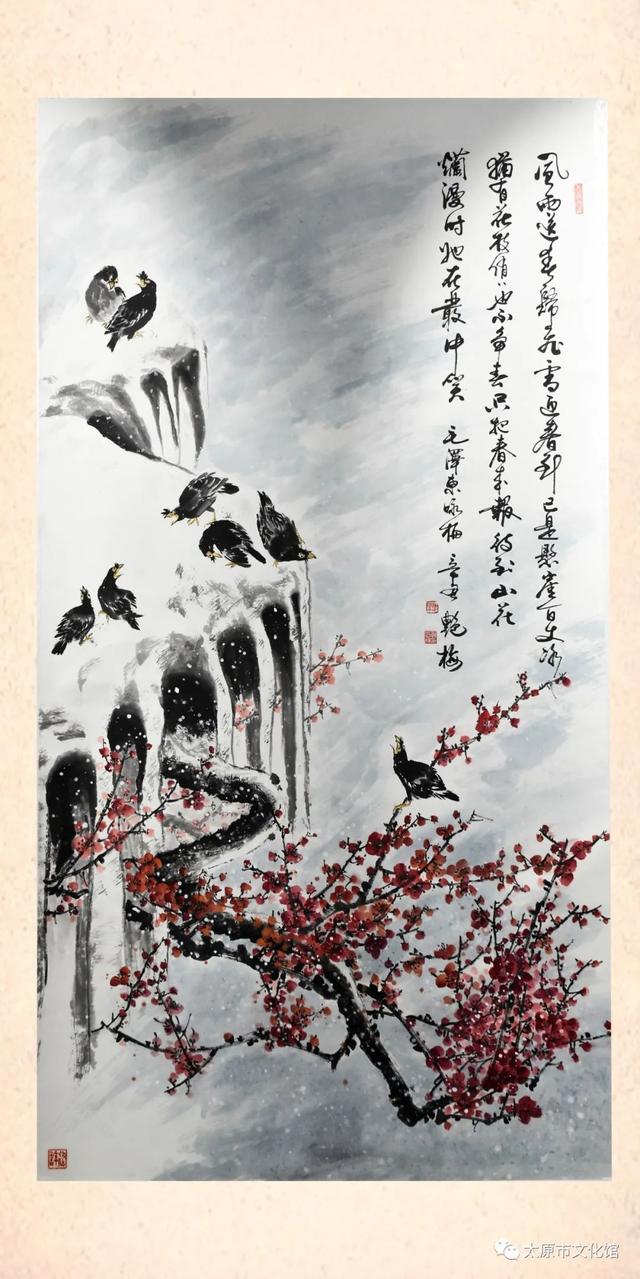 風雨送春歸飛雪迎春到已是懸崖百丈冰
猶有花枝俏〻也不爭春只把春來報待到山花
爛漫時她在叢中笑 毛澤東咏梅 辛丑 艷梅
太原市文化馆